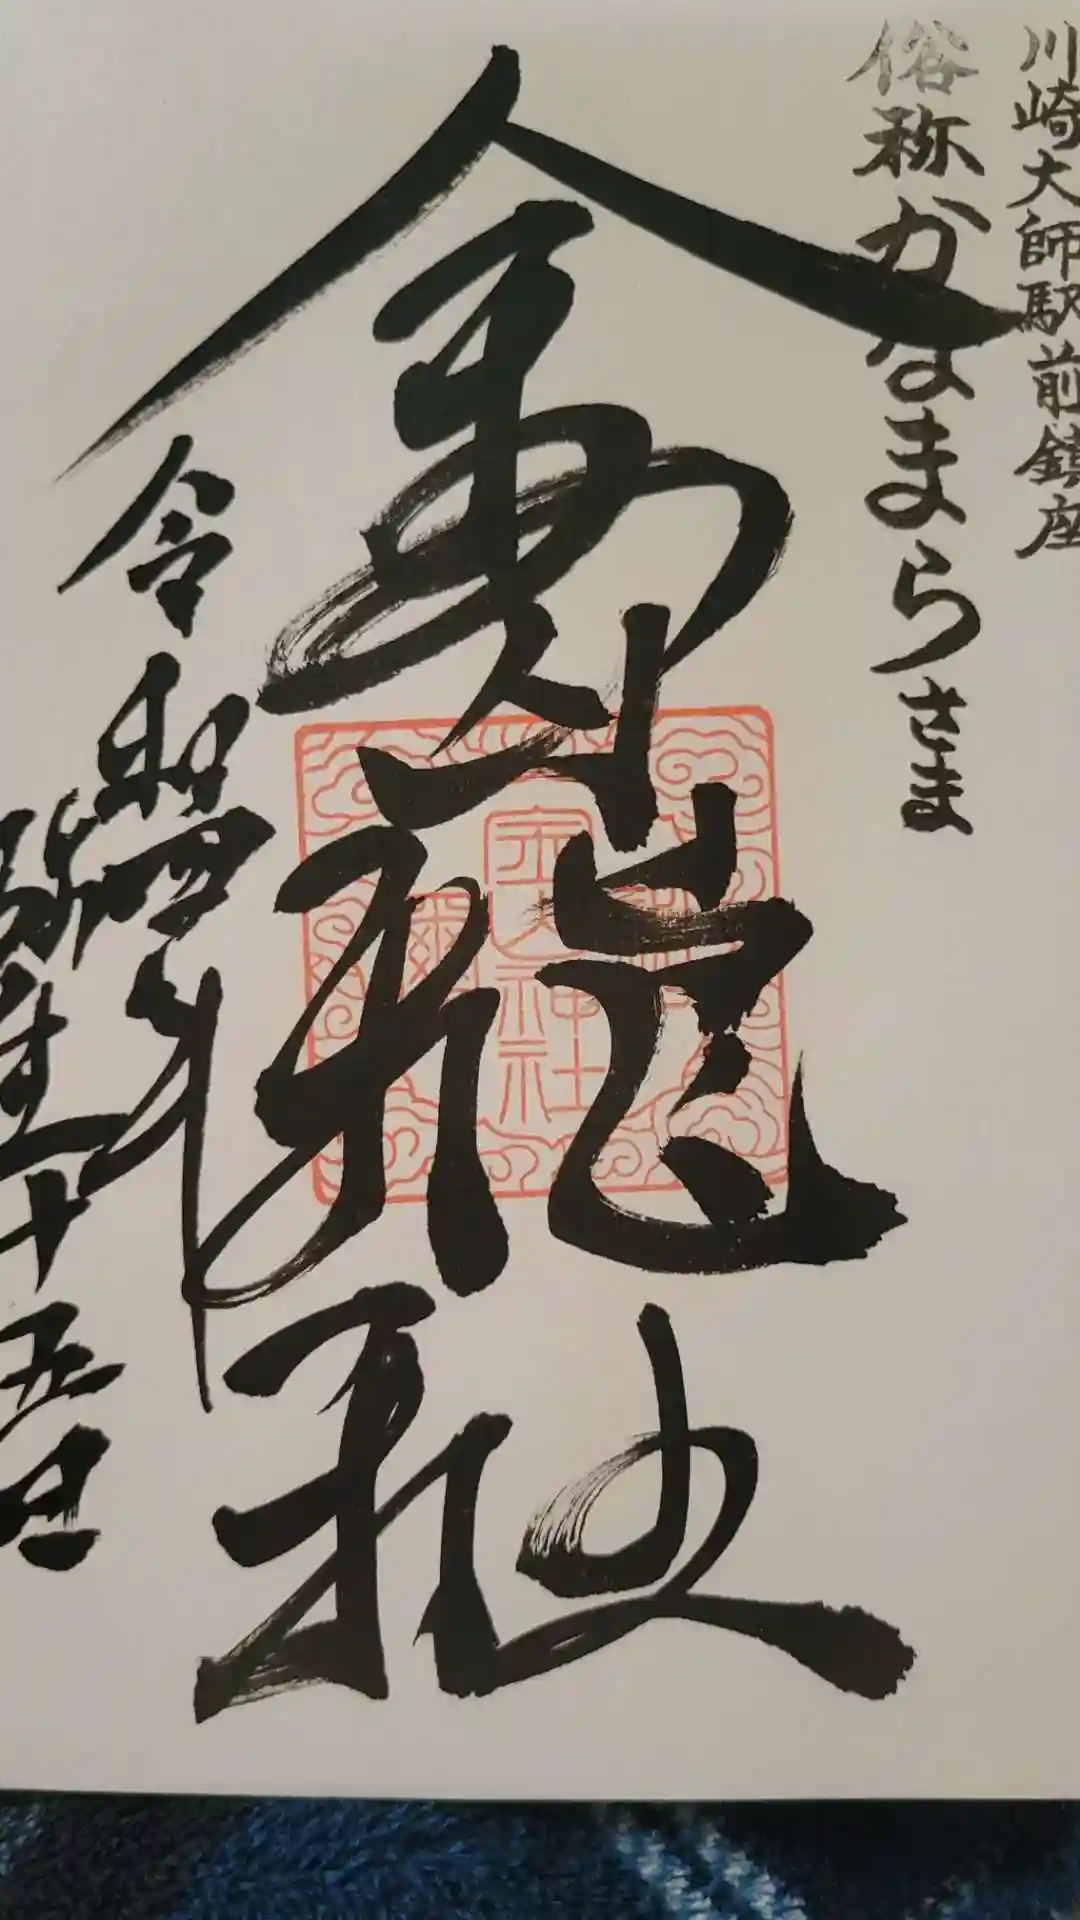 川崎大師駅前鎮座
俗称かなまらさま
金山神社
令和四年
十五日